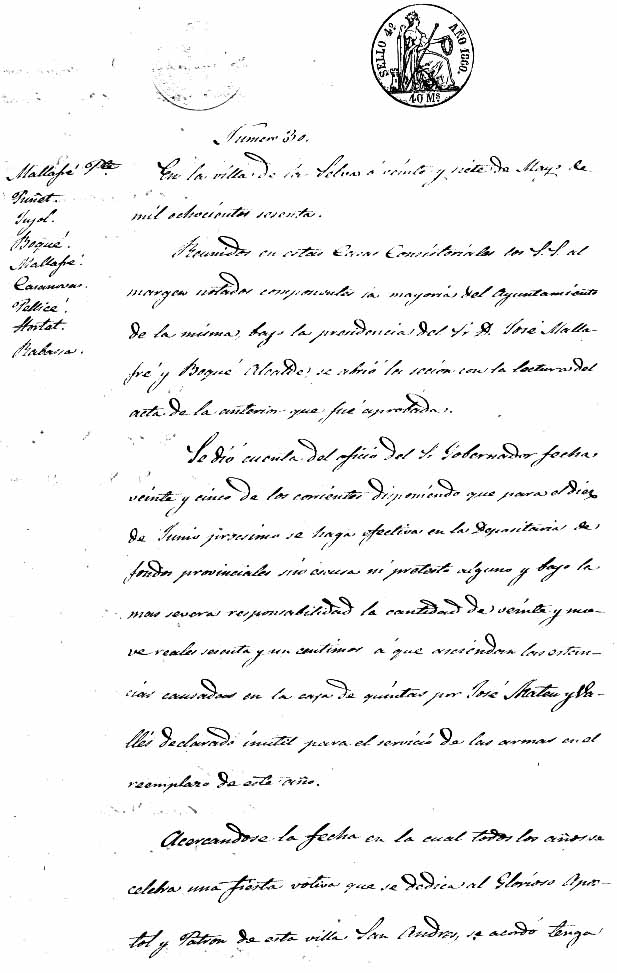 SELLO 4º AÑO 1860.
40 Ms
Numero 30.
Mallafré Pte
Puñet.
Pujol.
Boqué.
Mallafré.
Casanovas.
Pellicé.
Hortet.
Rabassa.
En la villa de la Selva á veinte y siete de Mayo de
mil ochocientos sesenta.
Reunidos en estas Casas Consistoriales los S.S. al
margen notados componentes la mayoria del Ayuntamiento
de la misma, bajo la presidencia del Sr. D. José Malla-
fré y Boqué Alcalde, se abrió la seción con la lectura del
acta de la anterior que fué aprobada.
Se dió cuenta del oficio del S. Gobernador fecha
veinte y cinco de los corrientes disponiendo que para el diez
de Junio procsimo se haga efectiva en la Depositaria de
fondos provinciales sin escusa ni protesto alguno y bajo la
mas severa responsabilidad la cantidad de veinte y nue-
ve reales sesenta y un centimos á que asciendan las estan-
cias causadas en la caja de quintas por José Mateu y Va-
llés declarado inutil para el servicio de las armas en el
reemplazo de este año.
Acercandose la fecha en la cual todos los años se
celebra una fiesta votiva que se dedica al Glorioso Apos-
tol y Patron de esta villa San Andres, se acordó tenga